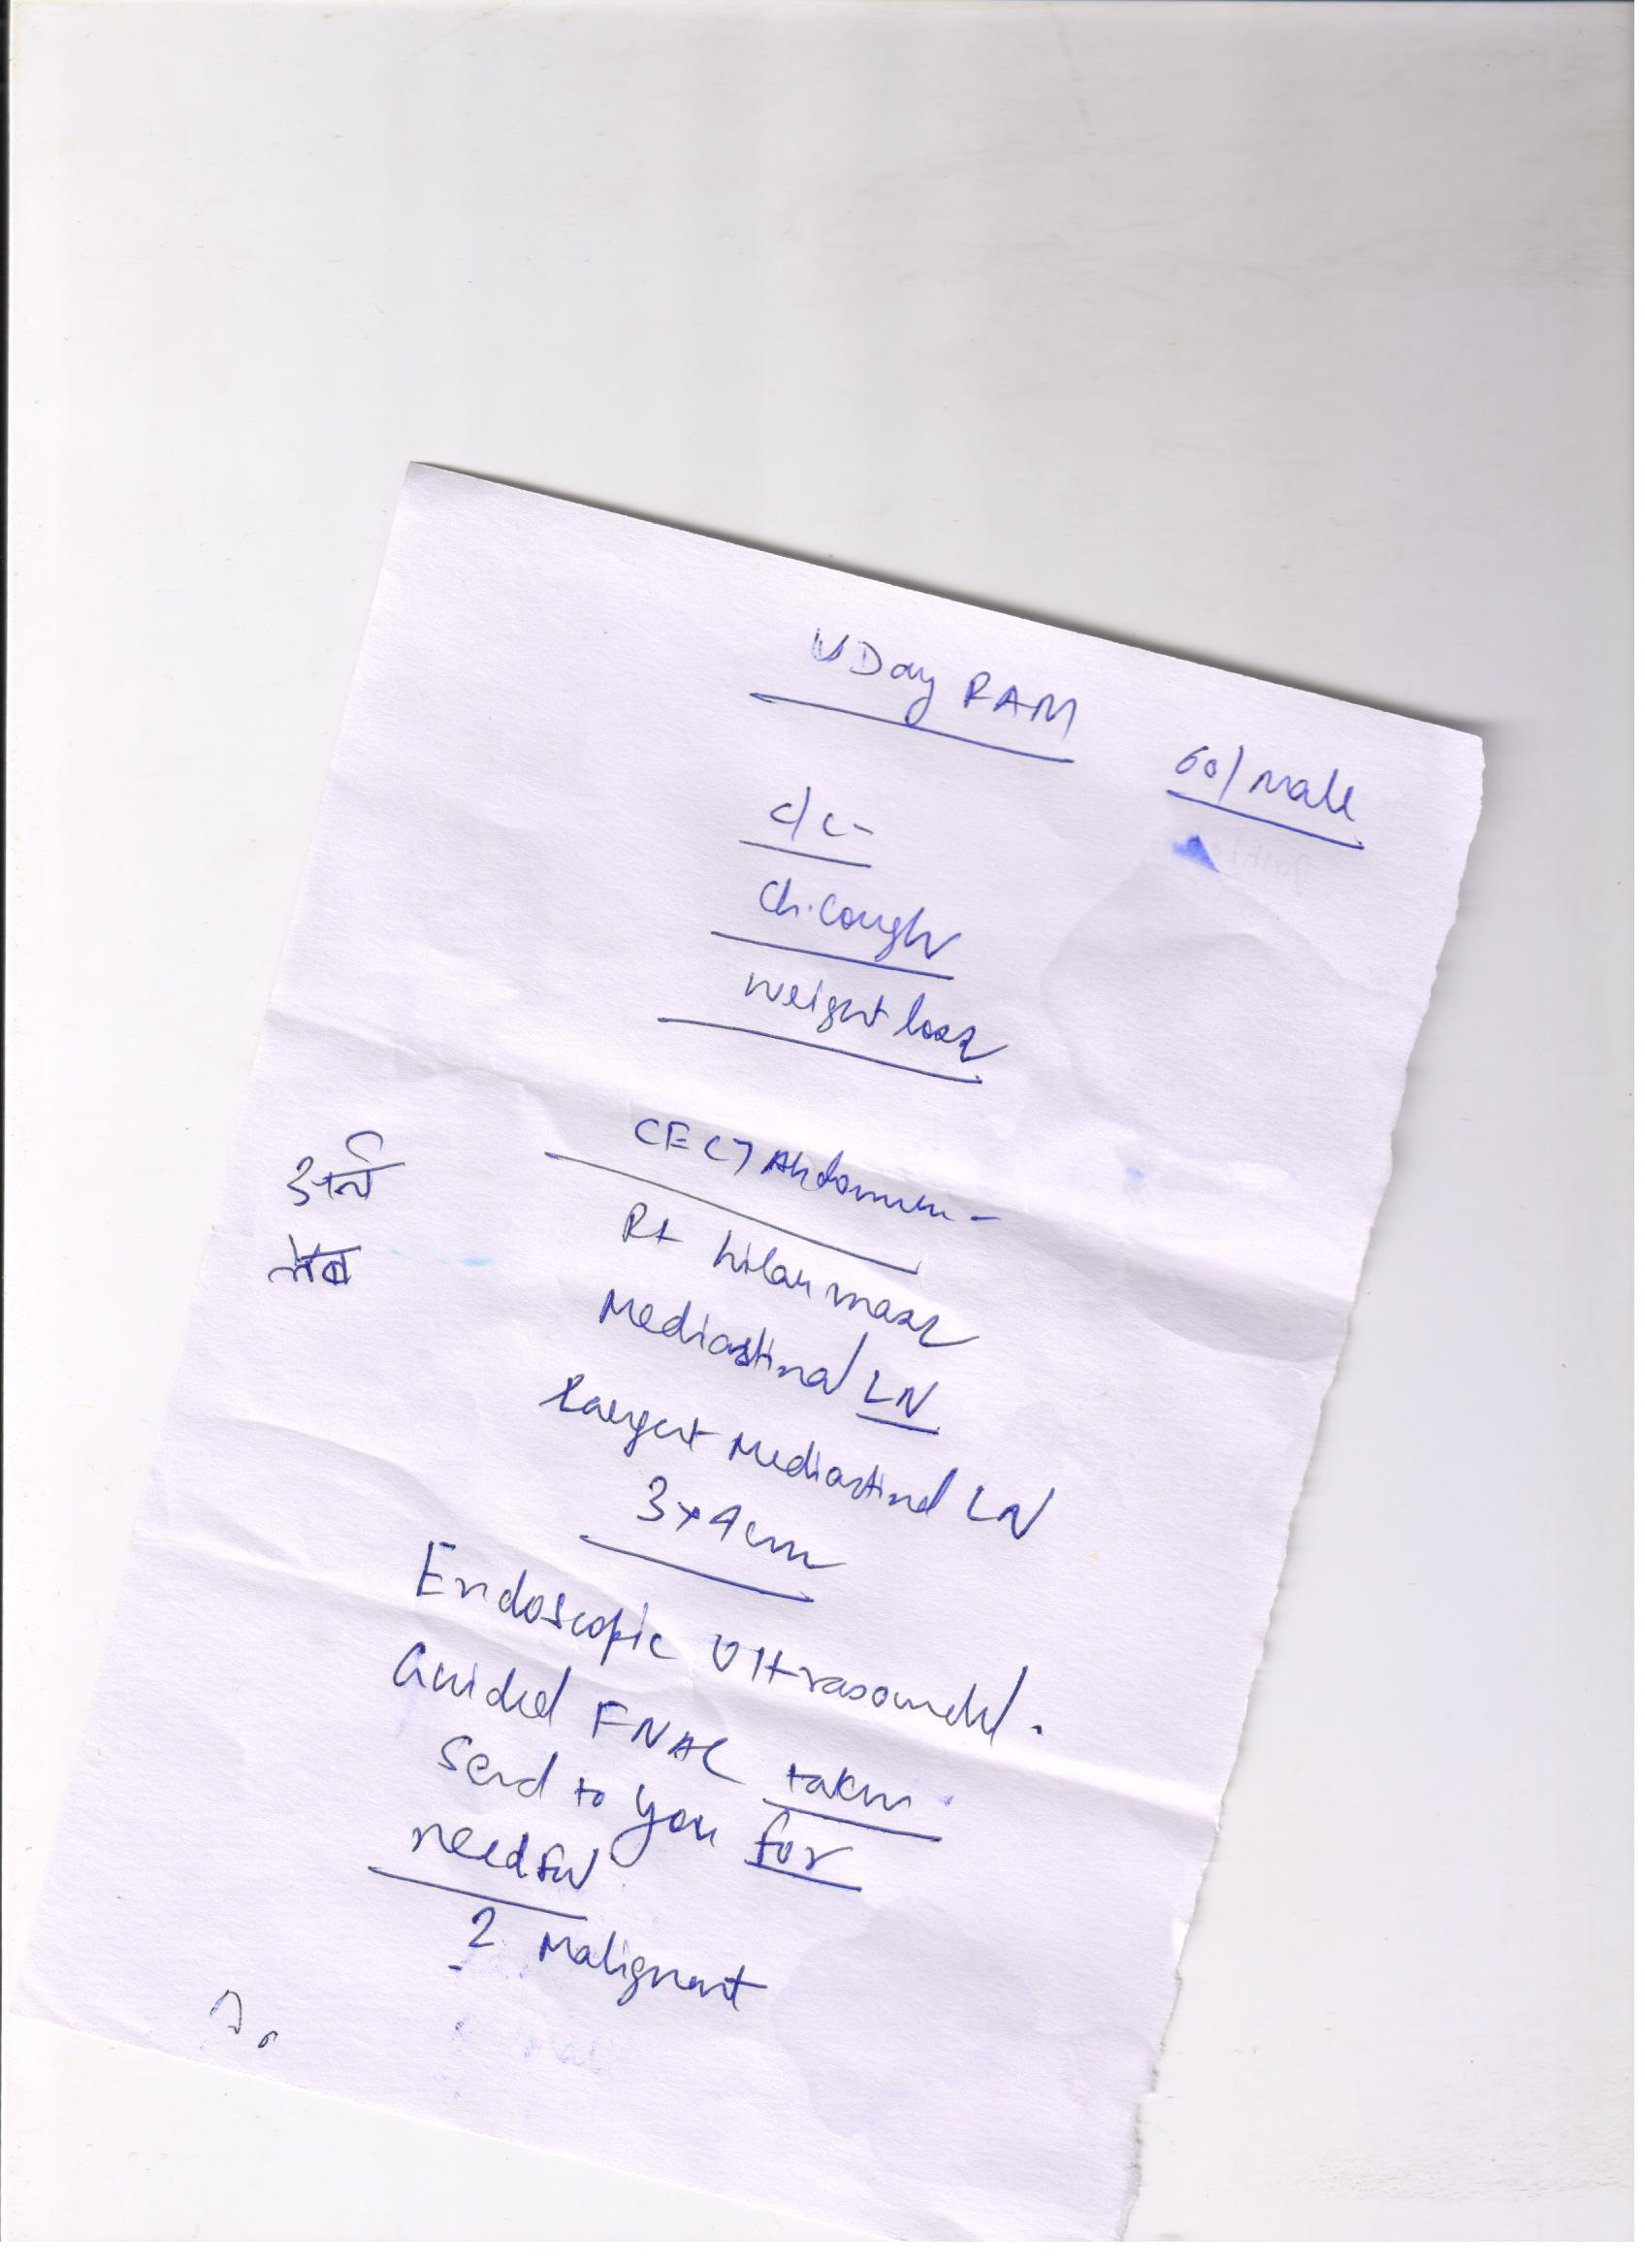 UDay RAM
60/ male
c/c-
Ch. Cough
weight loss
CECT Abdomen -
Rt hilar mass
Mediastinal LN
largest Mediastinal LN
3x4cm
Endoscopic Ultrasound.
Guided FNAC taken
Send to you for
needful
? Malignant